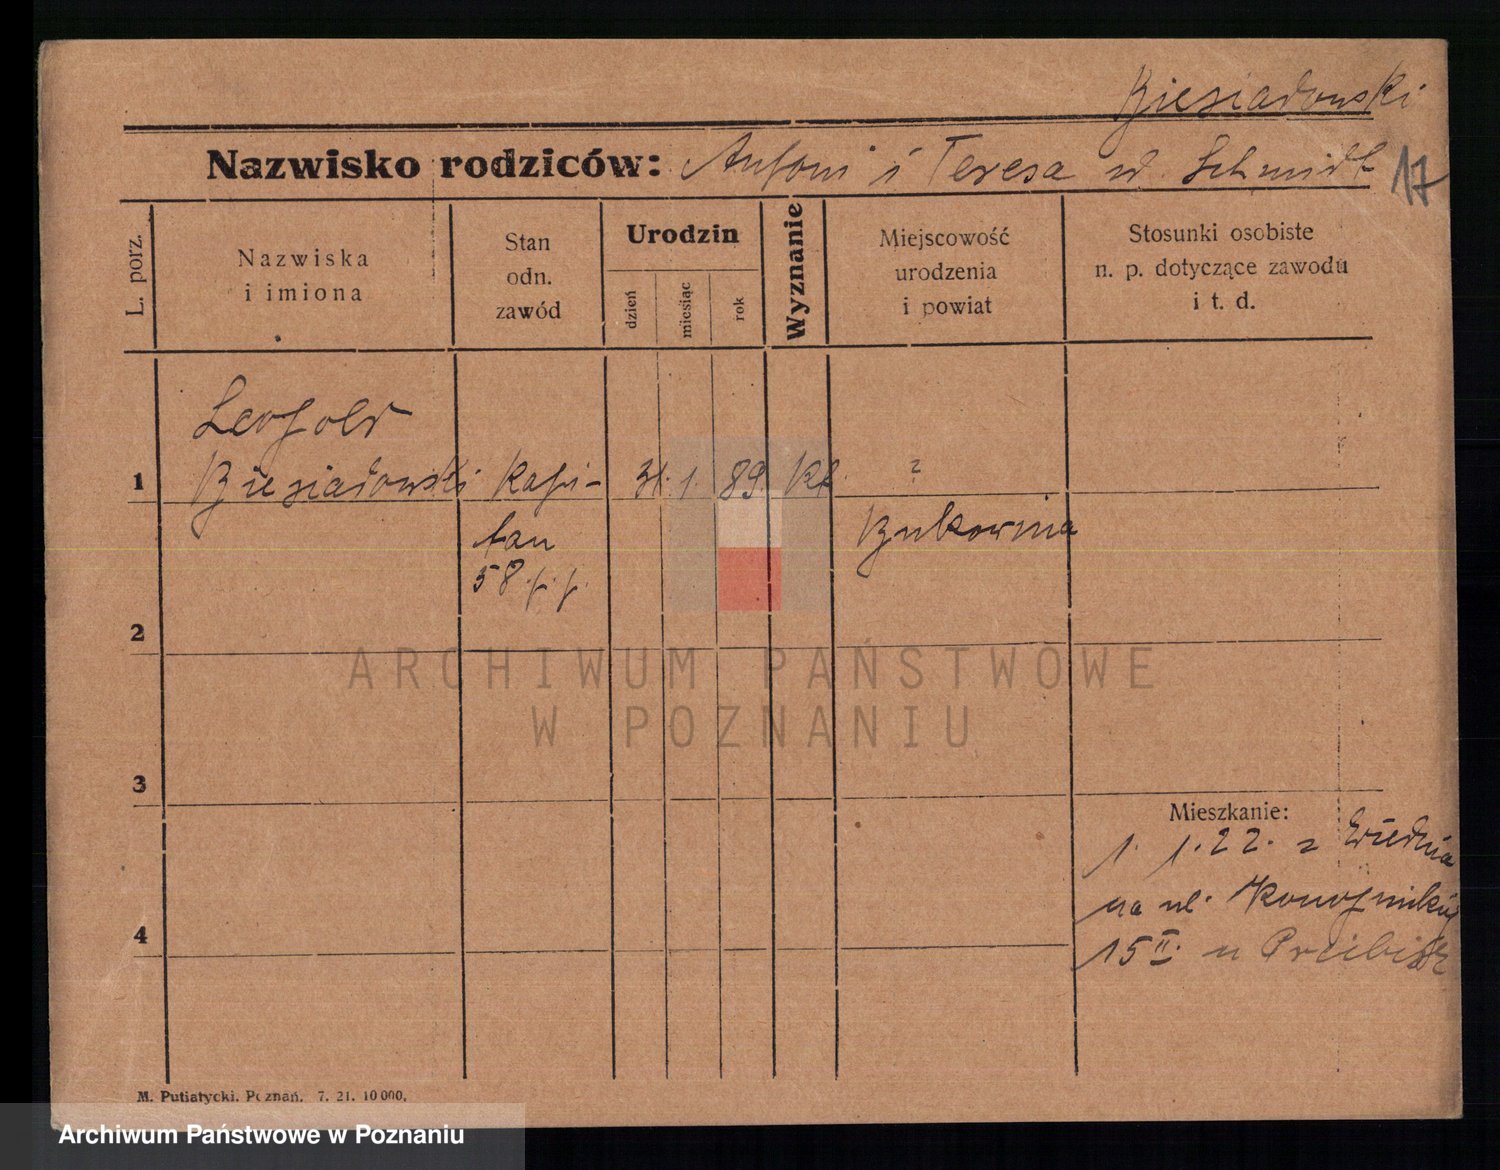 Biesiadowski
Nazwisko rodziców: Antoni i Teresa ur. Schmidt 17
L. porz.
Nazwiska
i imiona
Stan
odn.
zawód
Urodzin
dzień
miesiąc
rok
Wyznanie
Miejscowość
urodzenia
i powiat
Stosunki osobiste
n. p. dotyczące zawodu
i t. d.
Leopold
1 Biesiadowski Kapi- 31. 1. 89. kt. ?
tan Bukowina
58 p. p.
2
ARCHIWUM PAŃSTWOWE
W POZNANIU
3
Mieszkanie:
1. 1. 22. z Wiednia
na ul. Konopnickiej
4 15 II. u
M. Putiatycki. Poznań. 7. 21. 10 000.
Archiwum Państwowe w Poznaniu